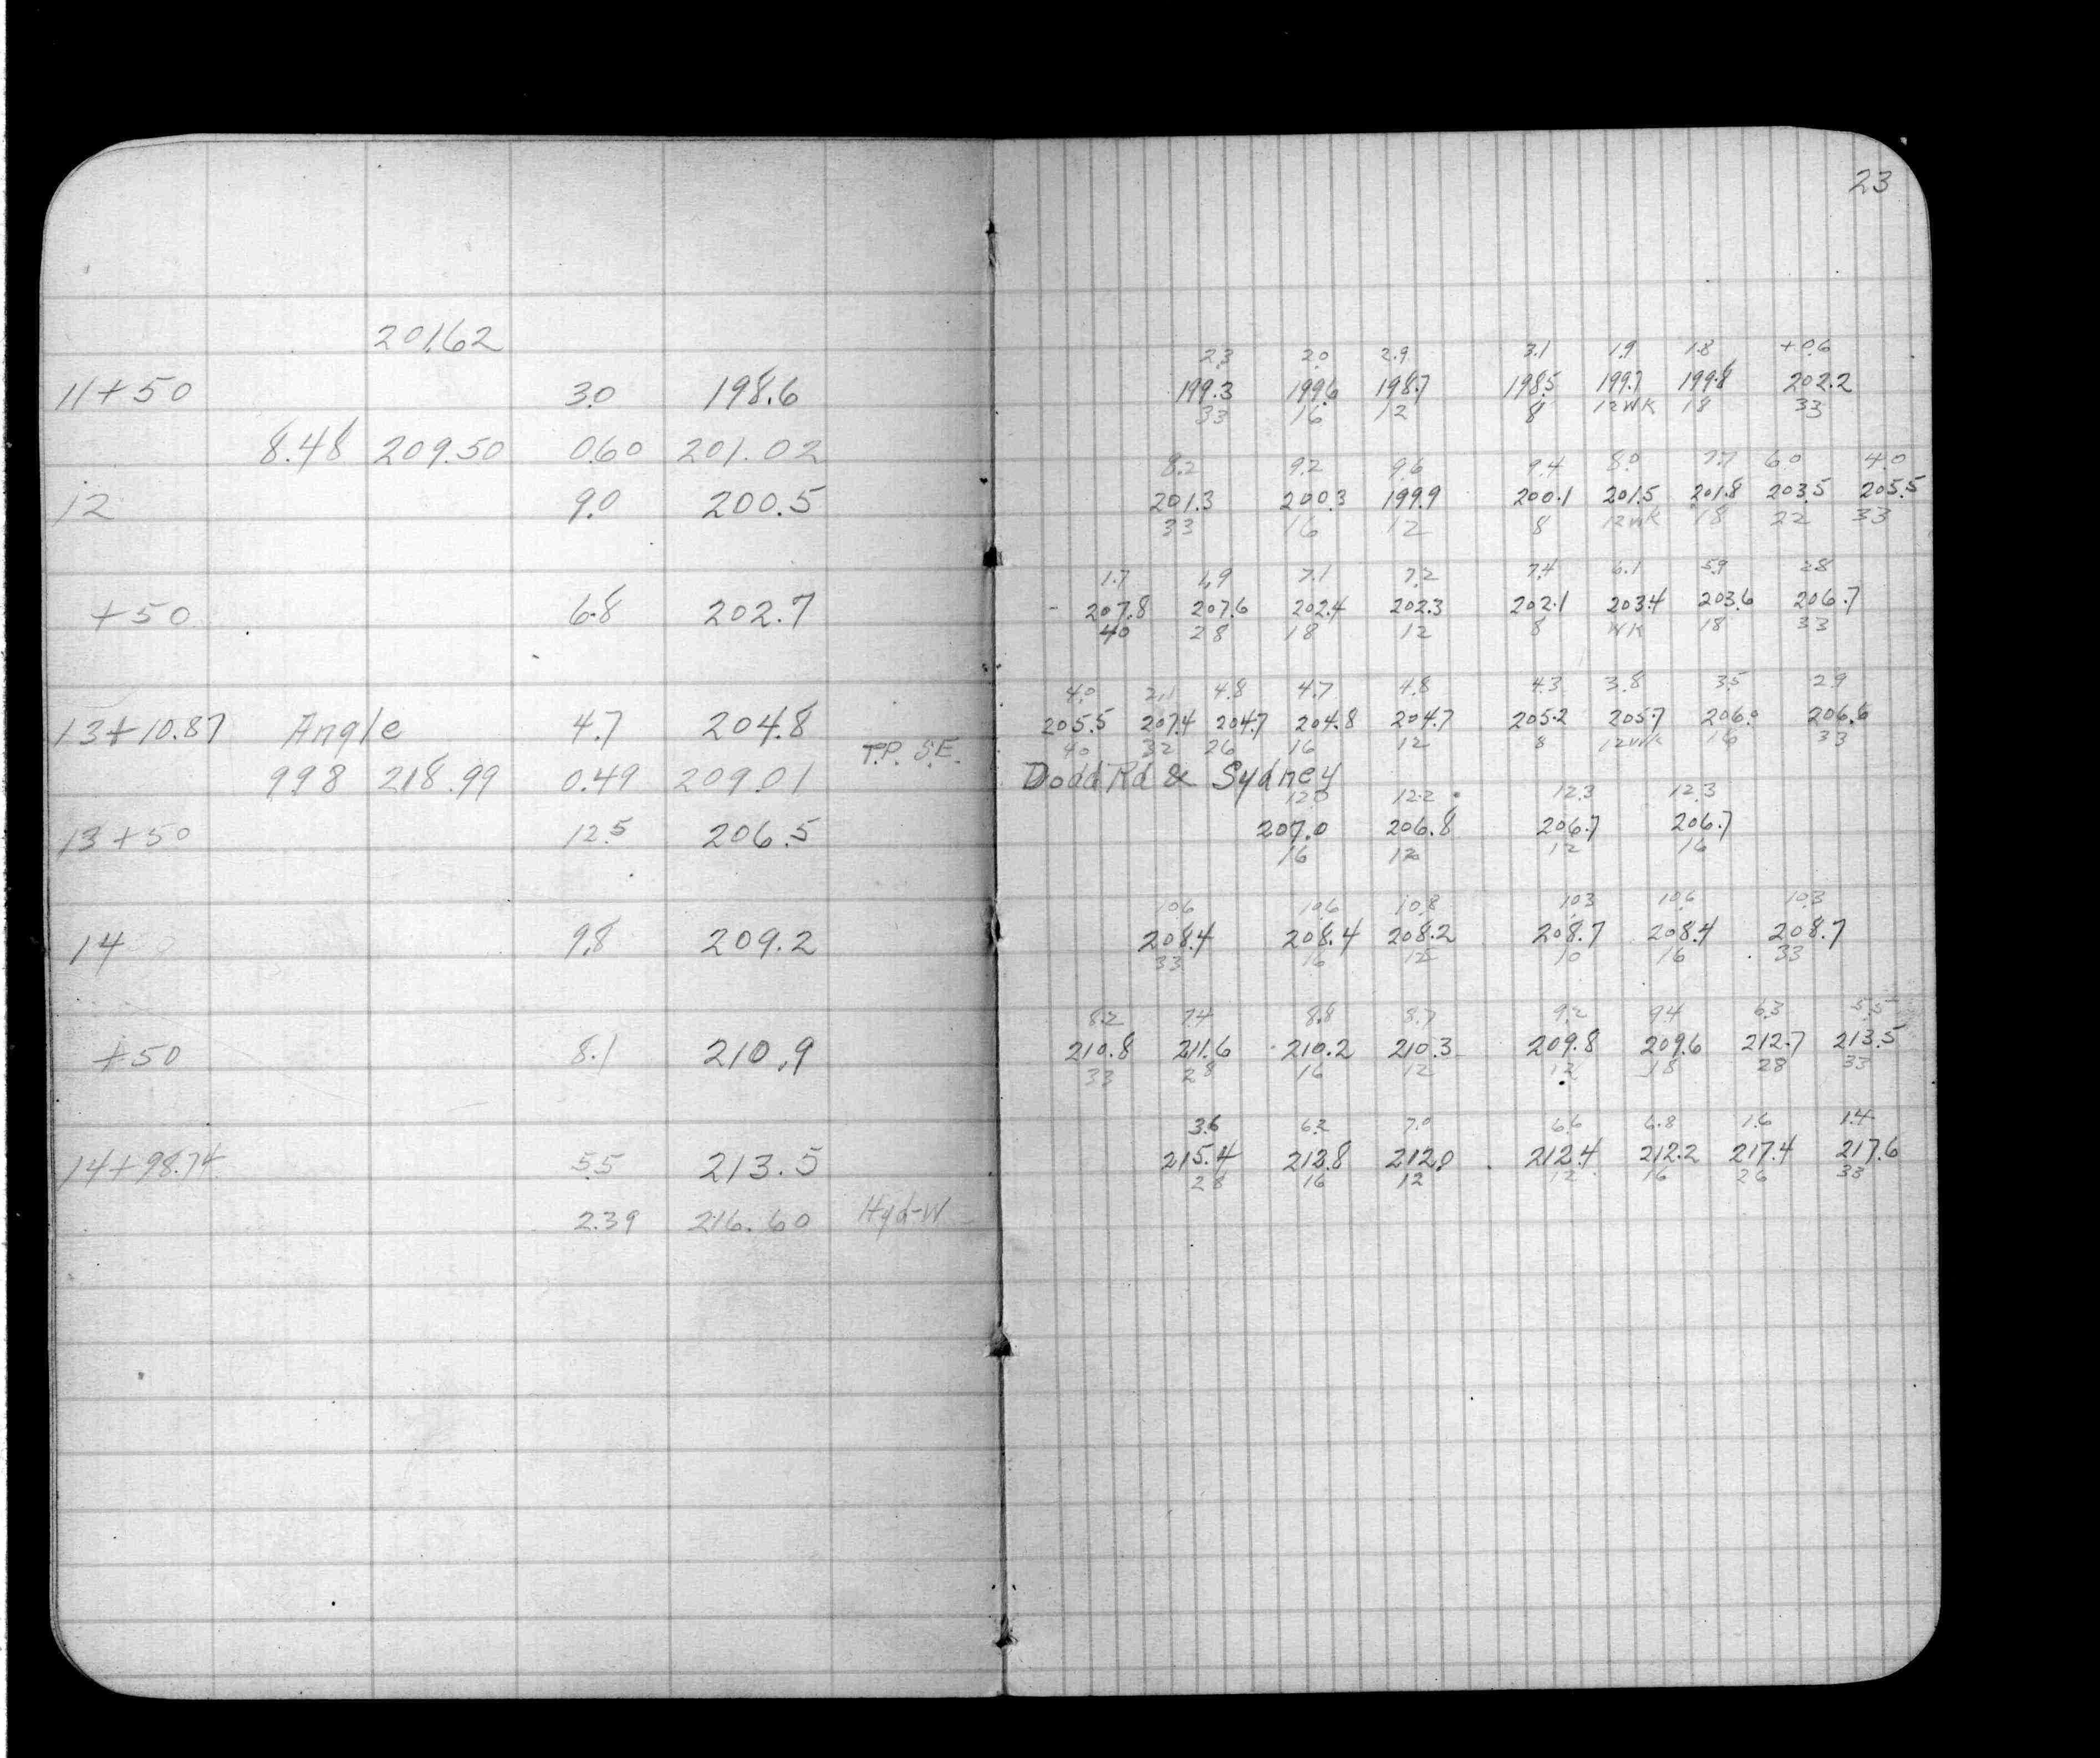 23
201.62
2.3 2.0 2.9 3.1 1.9 1.8 +0.6
11+50 3.0 198.6 199.3 199.6 198.7 198.5 199.7 199.8 202.2
33 16 12 8 12WK 18 33
8.48 209.50 0.60 201.02
8.2 9.2 9.6 9.4 8.0 7.7 6.0 4.0
12 9.0 200.5 201.3 200.3 199.9 200.1 201.5 201.8 203.5 205.5
33 16 12 8 12WK 18 22 33
1.7 1.9 7.1 7.2 7.4 6.1 5.9 2.8
+50 6.8 202.7 207.8 207.6 202.4 202.3 202.1 203.4 203.6 206.7
40 28 18 12 8 WK 18 33
4.0 2.1 4.8 4.7 4.8 4.3 3.8 3.5 2.9
13+10.87 Angle 4.7 204.8 205.5 207.4 204.7 204.8 204.7 205.2 205.7 206.0 206.6
40 32 26 16 12 8 12WK 16 33
9.98 218.99 0.49 209.01 T.P. S.E. Dodd Rd & Sydney
12.0 12.2 12.3 12.3
13+50 12.5 206.5 207.0 206.8 206.7 206.7
16 12 12 16
10.6 10.6 10.8 10.3 10.6 10.3
14 9.8 209.2 208.4 208.4 208.2 208.7 208.4 208.7
33 16 12 10 16 33
8.2 7.4 8.8 8.7 9.2 9.4 6.3 5.5
+50 8.1 210.9 210.8 211.6 210.2 210.3 209.8 209.6 212.7 213.5
33 28 16 12 12 18 28 33
3.6 6.2 7.0 6.6 6.8 1.6 1.4
14+98.74 5.5 213.5 215.4 212.8 212.0 212.4 212.2 217.4 217.6
28 16 12 12 16 26 33
2.39 216.60 Hyd-W